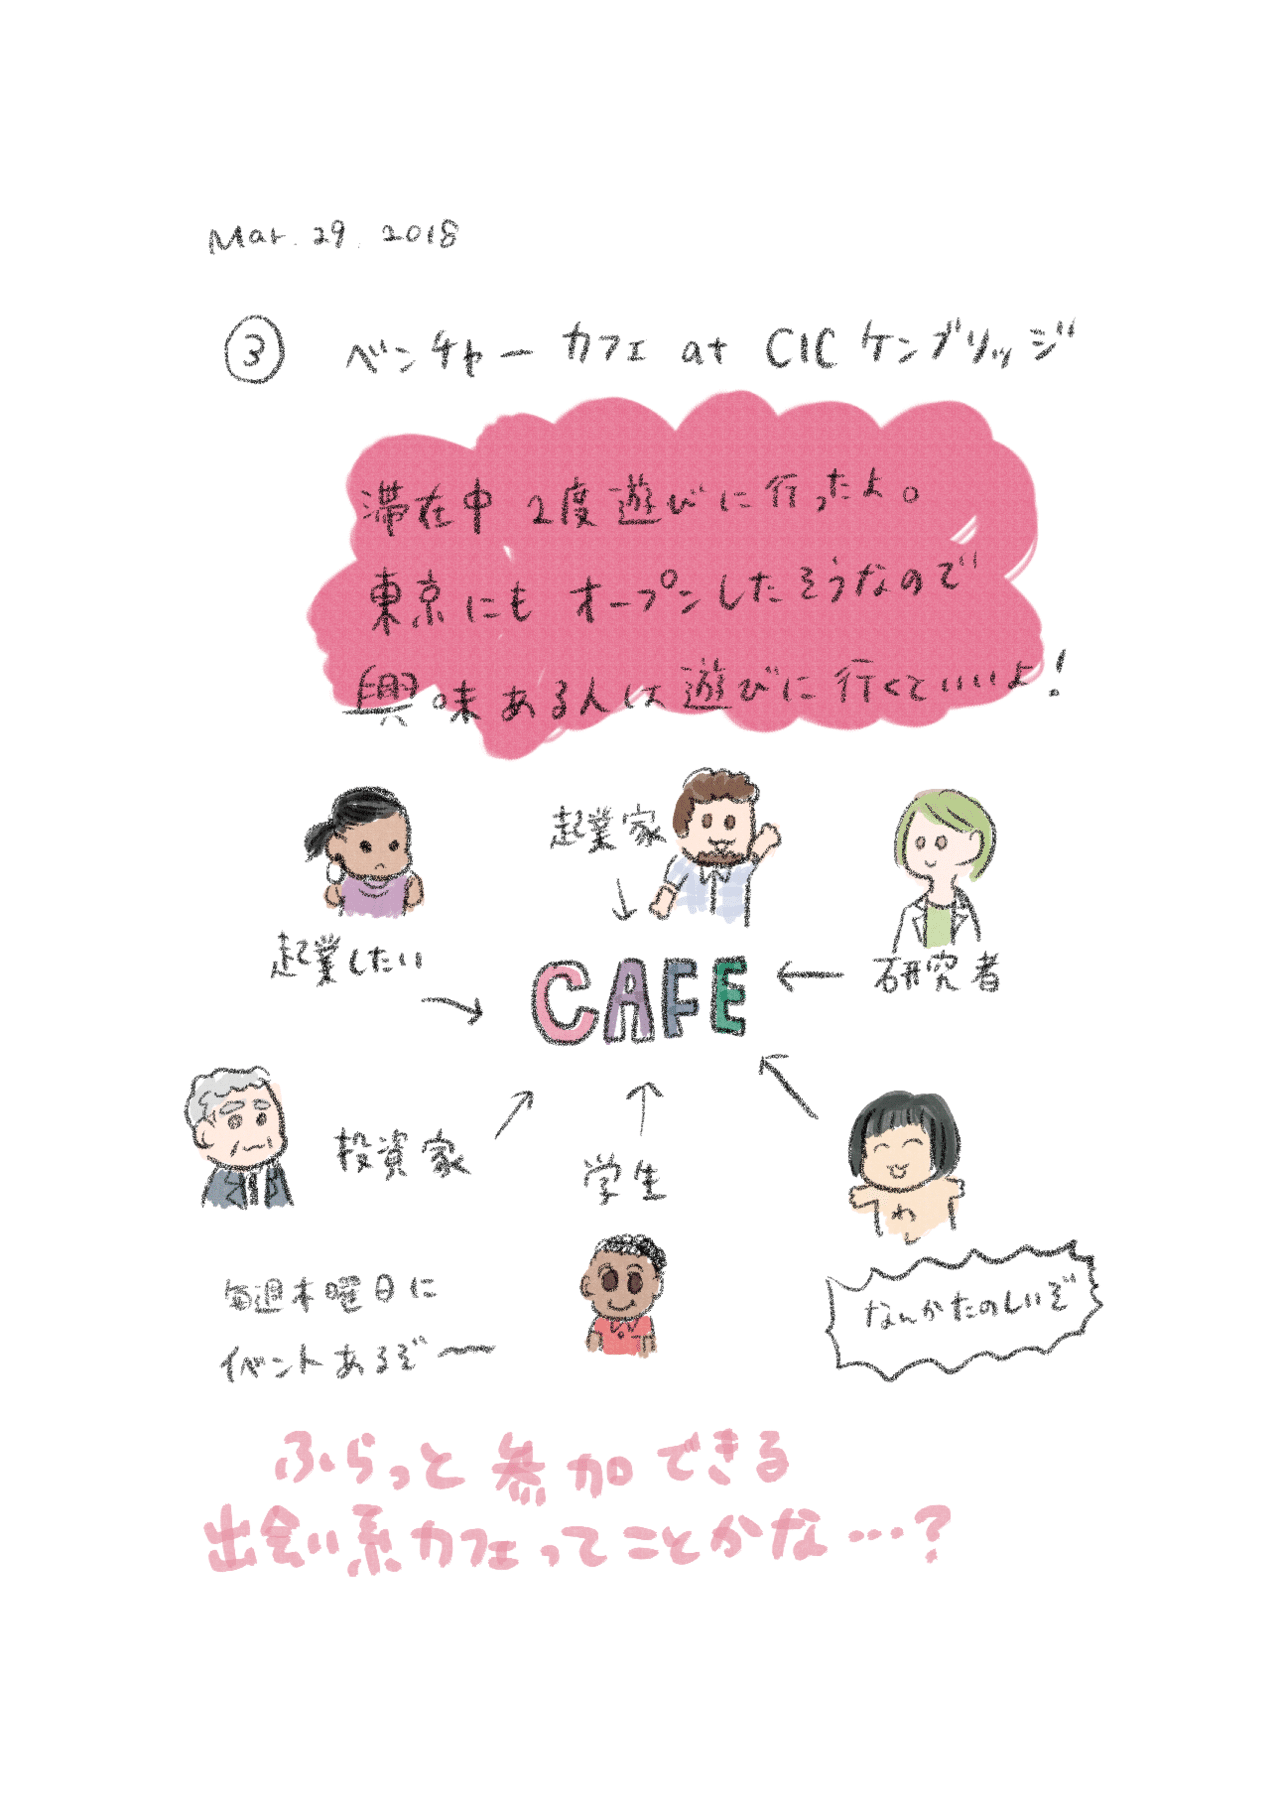 Mar. 29. 2018
③ ベンチャーカフェ at CIC ケンブリッジ
滞在中 2度遊びに行ったよ。
東京にも オープンしたそうなので
興味ある人は遊びに行くといいよ!
起業家
起業したい
CAFE
研究者
投資家
学生
わし
なんかたのしいぞ
毎週木曜日に
イベントあるぞ〜
ふらっと参加できる
出会い系カフェってことかな…?